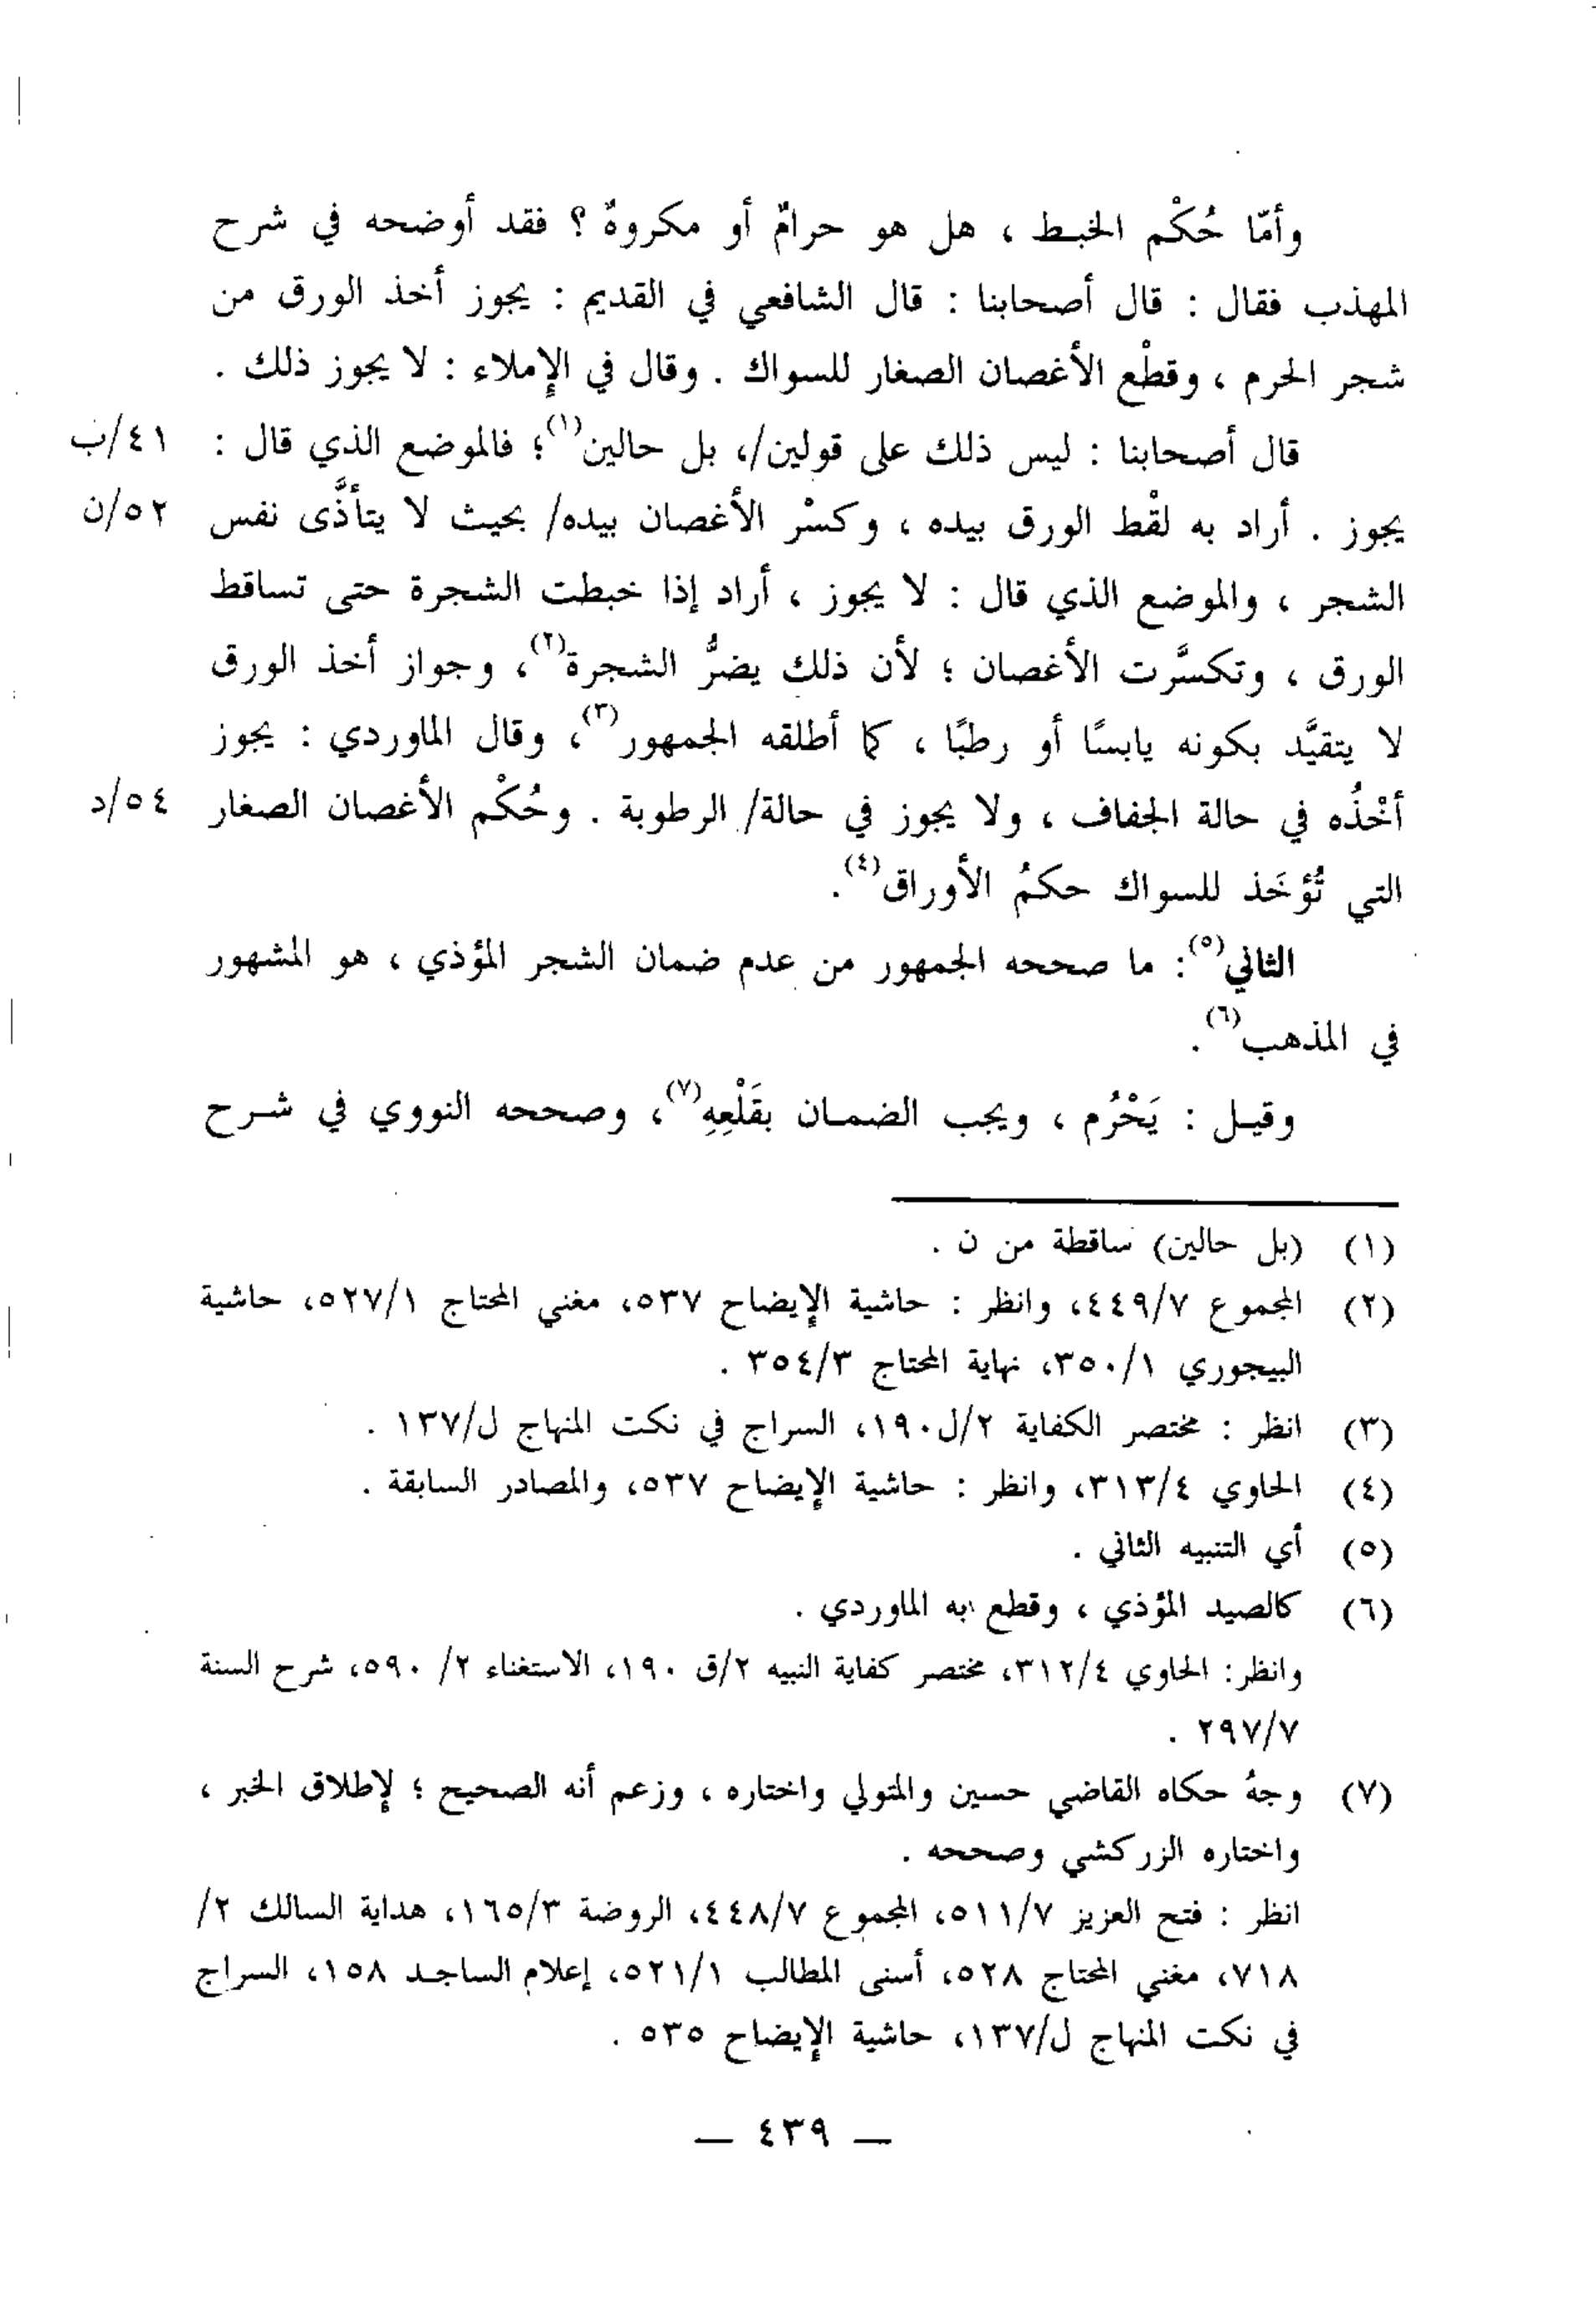 وأمّا حُكْم الخبـط ، هل هو حرامٌ أو مكروهٌ ؟ فقد أوضحه في شرح
المهذب فقال : قال أصحابنا : قال الشافعي في القديم : يجوز أخذ الورق من
شجر الحرم ، وقطْع الأغصان الصغار للسواك . وقال في الإملاء : لا يجوز ذلك .
قال أصحابنا : ليس ذلك على قولين/، بل حالين(١)؛ فالموضع الذي قال : ٤١/ب
يجوز . أراد به لقْط الورق بيده ، وكسْر الأغصان بيده/ بحيث لا يتأذَّى نفس ٥٢/ن
الشجر ، والموضع الذي قال : لا يجوز ، أراد إذا خبطت الشجرة حتى تساقط
الورق ، وتكسَّرت الأغصان ؛ لأن ذلك يضرُّ الشجرة(٢)، وجواز أخذ الورق
لا يتقيَّد بكونه يابسًا أو رطبًا ، كما أطلقه الجمهور(٣)، وقال الماوردي : يجوز
أخْذُه في حالة الجفاف ، ولا يجوز في حالة/ الرطوبة . وحُكْم الأغصان الصغار ٥٤/د
التي تُؤخَذ للسواك حكمُ الأوراق(٤).
الثاني(٥): ما صححه الجمهور من عدم ضمان الشجر المؤذي ، هو المشهور
في المذهب(٦).
وقيـل : يَحْرُم ، ويجب الضمـان بقَلْعِهِ(٧)، وصححه النووي في شـرح
(١) (بل حالين) ساقطة من ن .
(٢) المجموع ٤٤٩/٧، وانظر : حاشية الإيضاح ٥٣٧، مغني المحتاج ٥٢٧/١، حاشية
البيجوري ٣٥٠/١، نهاية المحتاج ٣٥٤/٣ .
(٣) انظر : مختصر الكفاية ٢/ل١٩٠، السراج في نكت المنهاج ل/١٣٧ .
(٤) الحاوي ٣١٣/٤، وانظر : حاشية الإيضاح ٥٣٧، والمصادر السابقة .
(٥) أي التنبيه الثاني .
(٦) كالصيد المؤذي ، وقطع به الماوردي .
وانظر: الحاوي ٣١٢/٤، مختصر كفاية النبيه ٢/ق ١٩٠، الاستغناء ٢/ ٥٩٠، شرح السنة
٢٩٧/٧ .
(٧) وجهٌ حكاه القاضي حسين والمتولي واختاره ، وزعم أنه الصحيح ؛ لإطلاق الخبر ،
واختاره الزركشي وصححه .
انظر : فتح العزيز ٥١١/٧، المجموع ٤٤٨/٧، الروضة ١٦٥/٣، هداية السالك ٢/
٧١٨، مغني المحتاج ٥٢٨، أسنى المطالب ٥٢١/١، إعلام الساجـد ١٥٨، السراج
في نكت المنهاج ل/١٣٧، حاشية الإيضاح ٥٣٥ .
— ٤٣٩ —